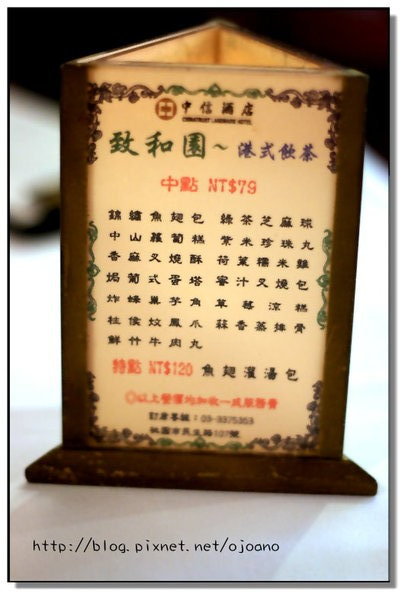 中信酒店
CHINATRUST LANDMARK HOTEL
致和園～港式飲茶
中點 NT$79
錦繡魚翅包 綠茶芝麻球
中山蘿蔔糕 紫米珍珠丸
香麻叉燒酥 荷葉糯米雞
焗葡式蛋塔 蜜汁叉燒包
炸蜂巢芋角 草莓涼糕
柱侯炆鳳爪 蒜香蒸排骨
鮮竹牛肉丸
特點 NT$120 魚翅灌湯包
◎以上餐價均加收一成服務費
訂席專線：03-3375353
桃園市民生路107號
http://blog.pixnet.net/ojoano